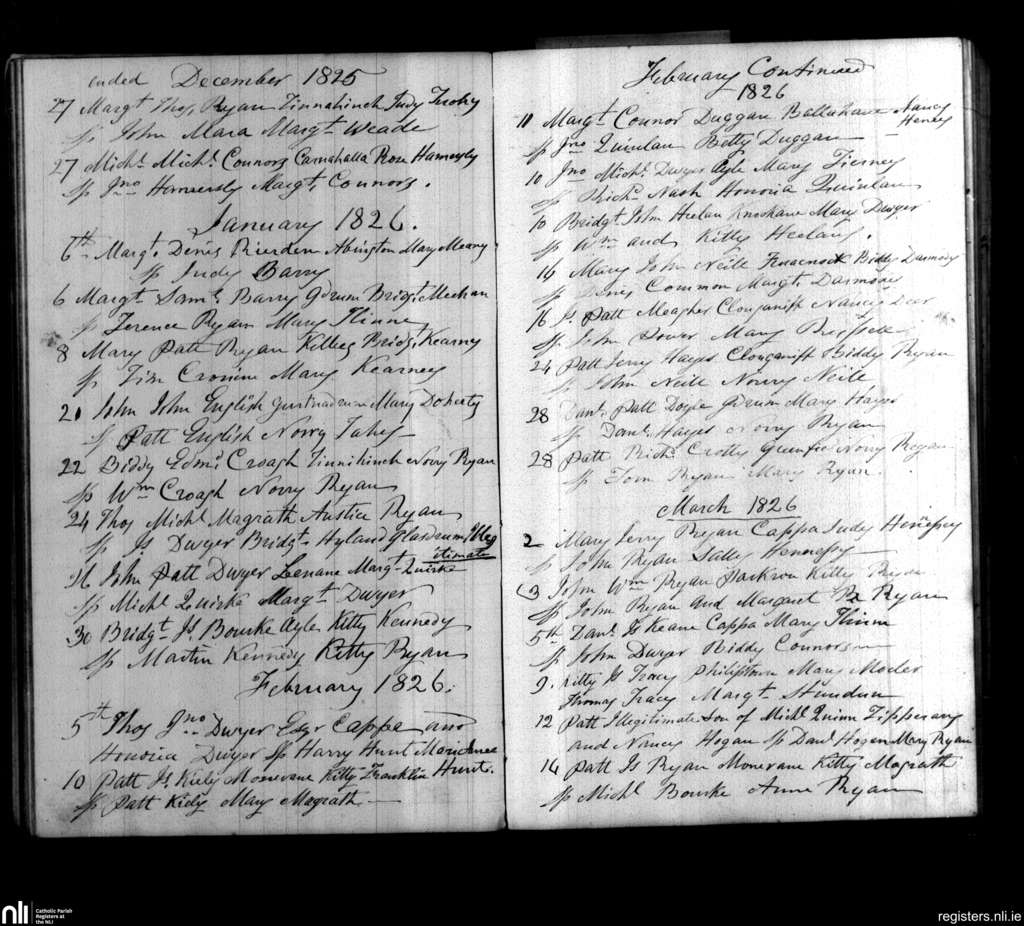 ended December 1825
27 Margt Thos Ryan Tinnahinch Judy Tuohy
sp John Mara Margt Meade
27 Michl Michl Connors Carnahalla Rose Hamersly
sp Jno Hamersly Margt Connors.
January 1826.
6th Margt Denis Rierden Abington Mary Meany
sp Judy Barry
6 Margt Saml Barry Gdrum Bridgt Meehan
sp Terence Ryan Mary Flinne
8 Mary Patt Ryan Killeg Bridgt Kearny
sp Tim Cronine Mary Kearney
20 John John English Mary Doherty
sp Patt English Norry Fahy
22 Biddy Edmd Croagh Tinnihinch Norry Ryan
sp Wm Croagh Norry Ryan
24 Thos Michl Magrath Austice Ryan
sp Js Dwyer Bridgt Hyland Glasdrum Illeg
itimate
16 John Patt Dwyer Lenane Margt Quirke
sp Michl Quirke Margt Dwyer
30 Bridgt Js Bourke Ayle Kitty Kennedy
sp Martin Kennedy Kitty Ryan
February 1826.
5th Thos Jno Dwyer Esqr Cappa and
Honoria Dwyer sp Harry Hunt
10 Patt Js Kiely Monevane Kitty Franklin Hunt.
sp Patt Kiely Mary Magrath
February Continued
1826
11 Margt Connor Duggan Ballahane Nancy
Heney
sp Jno Quinlan Betty Duggan
10 Jno Michl Dwyer Ayle Mary Tierney
sp Richd Nash Honoria Quinlan
10 Bridgt John Heelan Knockane Mary Dwyer
sp Wm and Kitty Heelan.
14 Mary John Neill Biddy Darmody
sp Denis Common Margt Darmody
16 Js Patt Meagher Clonganiff Nancy Leer
sp John Power Mary
24 Patt Jerry Hayes Clonganiff Biddy Ryan
sp John Neill Norry Neill
28 Danl Patt Doyle Gdrum Mary Hayes
sp Danl Hayes Norry Ryan
28 Patt Richd Crotty Norry Ryan
sp Tom Ryan Mary Ryan.
March 1826
2 Mary Jerry Ryan Cappa Judy Henessy
sp John Ryan Sally Hennessy
3 John Wm Ryan Jackson Kitty Ryan
sp John Ryan and Margaret Ry Ryan
5th Danl Js Keane Cappa Mary Flinn
sp John Dwyer Biddy Connors
9. Kitty Js Tracy Philipstown Mary Mocler
Thomas Tracy Margt
12 Patt Illegitimate Son of Michl Quinn Tipperary
and Nancy Hogan sp Danl Hogan Mary Ryan
14 Patt Js Ryan Monevane Kitty Magrath
sp Michl Bourke Anne Ryan
nli
Catholic Parish
Registers at
the NLI
registers.nli.ie